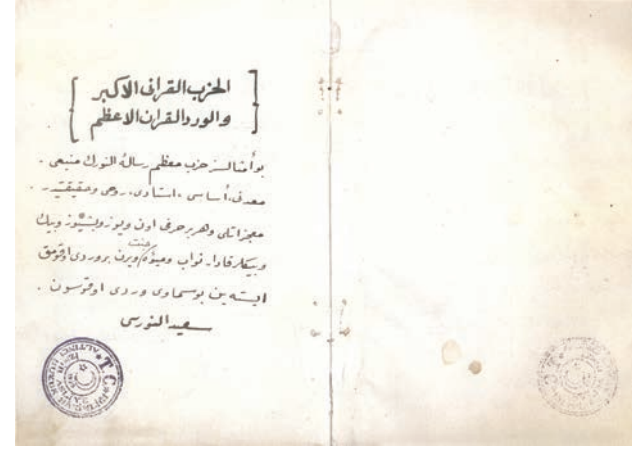 الحزب القرانى الاكبر
والورد القرآن الاعظم
بو أمثالسز حزب معظم رسالۀ النورك منبعى،
معدنى، أساسى، استادى، روحى وحقيقتيدر.
معجزاتلى وهر برحرفى اون ويوز وبشيوز وبيك
وبيكلر قادار ثواب وميوۀ جنت ويرن بر وردى اوقومق
ايسته ين بو سماوى وردى اوقوسون.
سعيد النورسى
T. C.